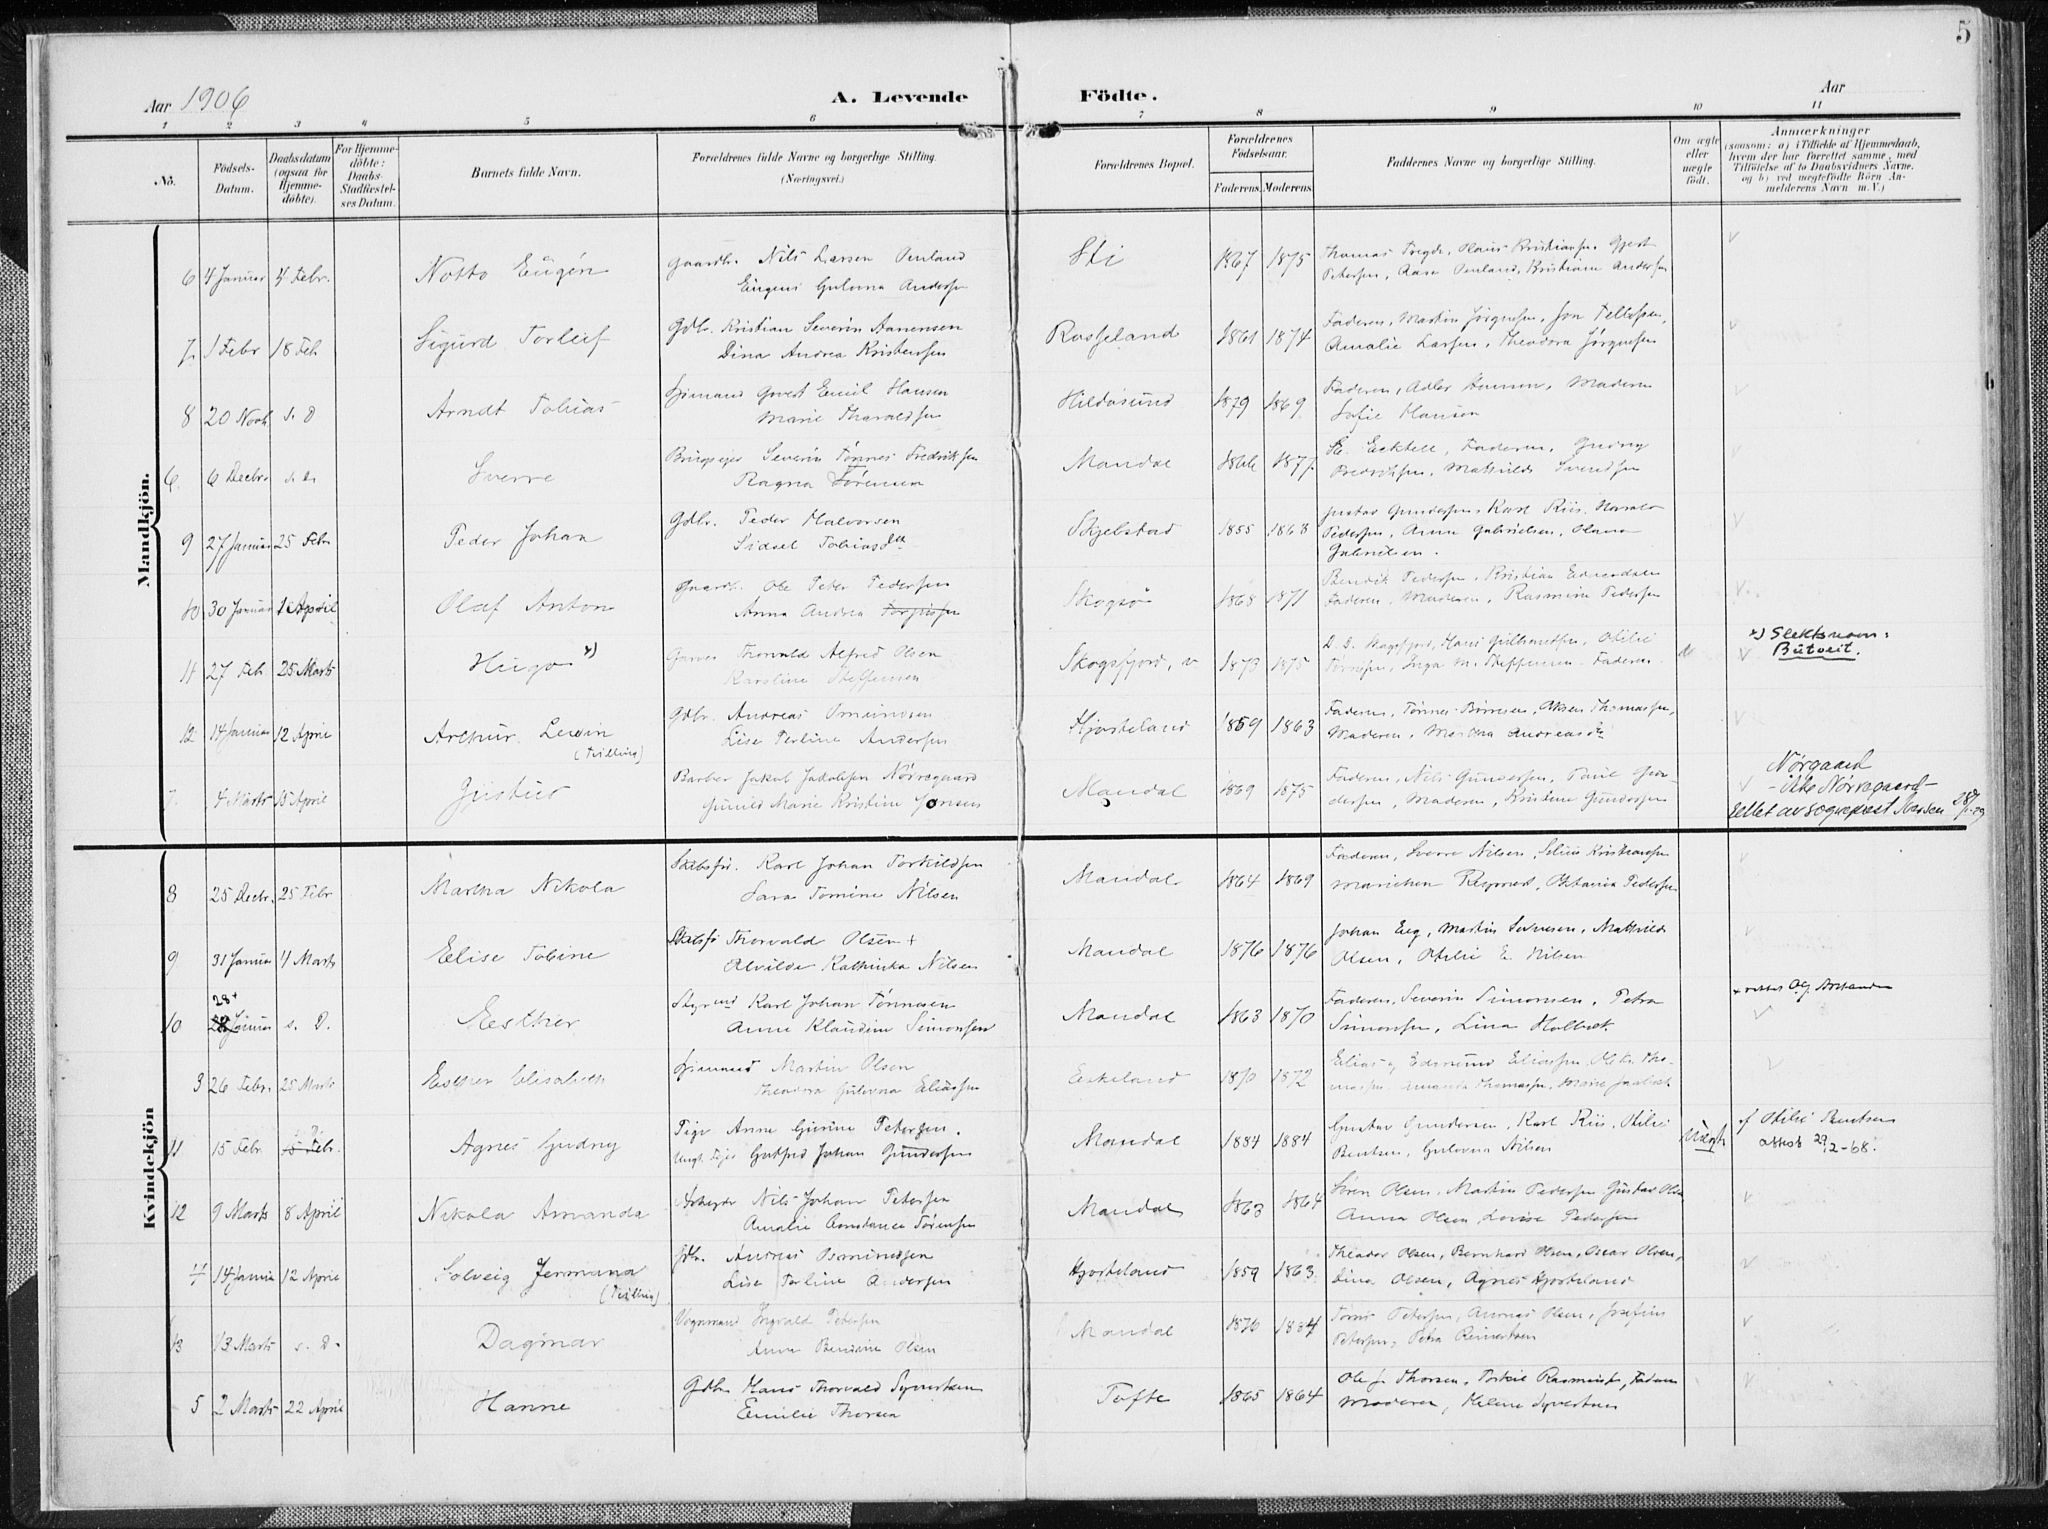 5
Aar 1906
A. Levende Födte.
Aar
1 2 3 4 5 6 7 8 9 10 11
No.
Födsels-Datum.
Daabsdatum (ogsaa for Hjemmedöbte).
For Hjemmedöbte: Daabs-Stadfæstelses Datum.
Barnets fulde Navn.
Forældrenes fulde Navne og borgerlige Stilling.
(Næringsvei.)
Forældrenes Bopæl.
Forældrenes Födselsaar.
Faderens. Moderens.
Faddernes Navne og borgerlige Stilling.
Om ægte eller uægte födt.
Anmærkninger
(saasom: a) i Tilfælde af Hjemmedaab,
hvem der har forrettet samme, med
Tilföielse af to Daabsvidners Navne.
og b) ved uægtefödte Börn An-
melderens Navn m. V.)
Mandkjön.
6 4 Januar 4 Febr. Notto Eugén Gaardbr. Nils Larsen Penland
Sti 1867 1875
Petersen, Aasa Penland, Kristiane Andersen
7 1 Febr 18 Feb Sigurd Torleif Gdbr. Kristian Severin Aanensen
Dina Andrea Kristensen
Rosseland 1861 1874 Faderen, Martin Jørgensen, Jon Tellefsen,
Amalie Larsen, Theodora Jørgensen
8 20 Novb s. D Arndt Tobias Sjømand Gvert Emil Hansen
Marie Tharaldsen
Hildøsund 1879 1869 Faderen, Adler Hansen, Moderen
Sofie Hansen
6. 6 Decbr s. D. Sverre Severin Tønnes Fredriksen
Ragna Sørensen
Mandal 1866 1877 Faderen, Gudny
Fredriksen, Mathilde Svendsen
9 27 Januar 25 Febr Peder Johan Gdbr. Peder Halvorsen
Sidsel Tobiasdtr
Skjebstad 1855 1863 Gustav Gundersen, Karl Riis, Harald
Pedersen, Anna Gabrielsen, Olava
Gabrielsen.
10 30 Januar 1 April Olaf Anton Gaardbr. Ole Peter Pedersen
Anna Andrea
Skogsø 1868 1871 Bendik Pedersen, Kristian
Faderen, Moderen, Rasmine Pedersen
11 27 Feb 25 Marts Hugo x) Garver Thorvald Alfred Olsen
Karoline Steffensen
Skogsfjord, v 1873 1875
Inga M. Steffensen. Faderen.
x) Slektsnavn:
Butveit.
12 14 Januar 12 April Arthur Levin (Tvilling) Gdbr. Andreas Osmundsen
Lise Terline Andersen
Hjorteland 1859 1863 Faderen, Tønnes Børresen, Aksen Thomassen,
Moderen, Martha Andreasdtr
7. 4 Marts 15 April Gustav Barber Jakob Jakobsen Nørregaard
Gunild Marie Kristine Jonsen
Mandal 1869 1875 Faderen, Nils Gundersen,
Moderen, Kristine Gundersen
Nørgaard
- ikke Nørregaard -
rettet av sogneprest
Kvindekjön
8 25 Decbr. 25 Febr Martha Nikola Skibsfør. Karl Johan Torkildsen
Sara Tomine Nilsen
Mandal 1864 1869 Faderen, Sverre Nilsen,
Oktavia Pedersen
9 31 Januar 4 Marts Elise Tobine Skibsfø Thorvald Olsen +
Alvilde Kathinka Nilsen
Mandal 1876 1876 Johan Eeg, Martin Mathilde
Olsen, Otilie E. Nilsen
10 28 + Januar s. D. Esther Styrmd Karl Johan Tønnesen
Anne Klaudine Simonsen
Mandal 1863 1870 Faderen, Severin Simonsen, Petra
Simonsen, Lina Holbæk
3 26 Febr. 25 Marts Esther Elisabeth Sjømand Martin Olsen
Theodora Gulovna Eliassen
Eskeland 1870 1872 Elias og Edmund Eliassen,
11 15 Febr. Agnes Gudny Pige Anne Gurine Petersen.
Gotfred Johan Gundersen
Mandal 1884 1884 Gustav Gundersen, Karl Riis, Otilie
Bentsen, Gulovna Nilsen
Uægte
f Otilie Bentsen
attest 29/2-68.
12 9 Marts 8 April Nikola Amanda Arbeyder Nils Johan Petersen
Amalie Constance Sørensen
Mandal 1863 1864 Søren Olsen, Martin Pedersen Gustav Olsen
Anna Olsen Lovise Pedersen
4 14 Januar 12 April Solveig Jermana (Tvilling) Gdbr. Andreas Osmundsen
Lise Terline Andersen
Hjorteland 1859 1863 Theodor Olsen, Bernhard Olsen, Oscar Olsen,
Lina Olsen, Agnes Hjorteland
13 13 Marts s. D. Dagmar Vognmand Ingvald Petersen
Anna Bendine Olsen
Mandal 1876 1884
Petersen, Petra Reinertsen
5 2 Marts 22 April Hanne Gdbr Hans Thorvald Syvertsen
Emilie Thorsen
Tofte 1865 1864 Ole J. Thorsen, Torkil Rasmussen, Faderen
Moderen, Helene Syvertsen